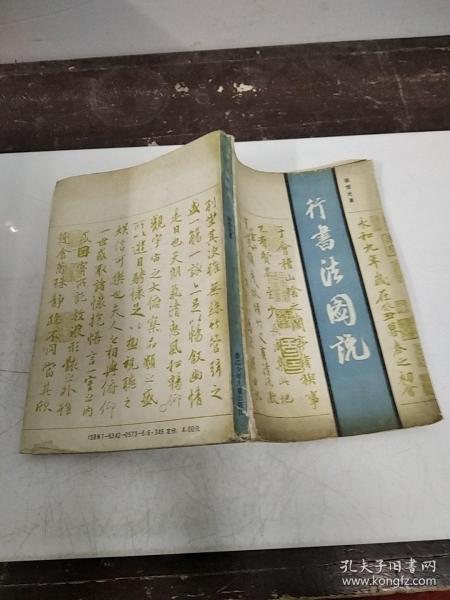 行书法图说
永和九年歲在癸丑暮春之初會
于會稽山陰之蘭亭脩禊事
列坐其次雖無絲竹管弦之
盛一觴一詠亦足以暢敘幽情
是日也天朗氣清惠風和暢仰
觀宇宙之大俯察品類之盛
所以遊目騁懷足以極視聽之
娛信可樂也夫人之相與俯仰
一世或取諸懷抱悟言一室之內
或因寄所託放浪形骸之外雖
趣舍萬殊静躁不同當其欣
ISBN7-5342-0573-5/G·346 定价:4.00元
孔夫子旧书网
www.kongfz.com